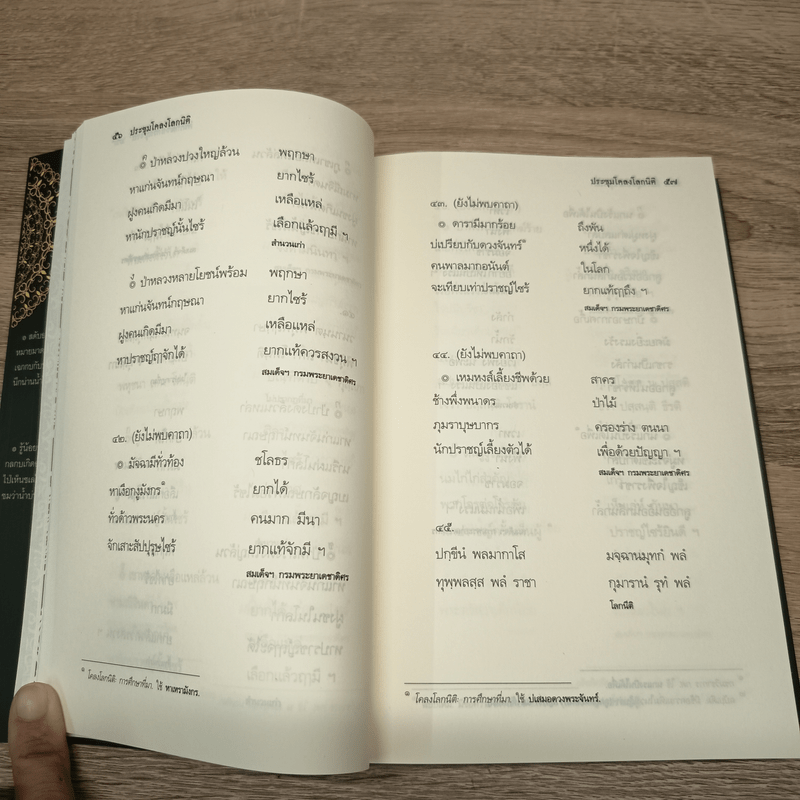 ๕๖ ประชุมโคลงโลกนิติ
๏ ป่าหลวงปวงใหญ่ล้วน พฤกษา
หาแก่นจันทน์กฤษณา ยากไซร้
ฝูงคนเกิดมีมา เหลือแหล่
หานักปราชญ์นั้นไซร้ เลือกแล้วฤๅมี ฯ
สำนวนเก่า
๏ ป่าหลวงหลายโยชน์พร้อม พฤกษา
หาแก่นจันทน์กฤษณา ยากไซร้
ฝูงคนเกิดมีมา เหลือแหล่
หาปราชญ์ฤๅจักได้ ยากแท้ควรสงวน ฯ
สมเด็จฯ กรมพระยาเดชาดิศร
๔๒. (ยังไม่พบคาถา)
๏ มัจฉามีทั่วท้อง ชโลธร
หาเงือกงูมังกร๑ ยากได้
ทั่วด้าวพระนคร คนมาก มีนา
จักเสาะสัปปุรุษไซร้ ยากแท้จักมี ฯ
สมเด็จฯ กรมพระยาเดชาดิศร
๑ โคลงโลกนิติ: การศึกษาที่มา. ใช้ หาเหรามังกร.
ประชุมโคลงโลกนิติ ๕๗
๔๓. (ยังไม่พบคาถา)
๏ ดารามีมากร้อย ถึงพัน
บ่เปรียบกับดวงจันทร์๑ หนึ่งได้
คนพาลมากอนันต์ ในโลก
จะเทียบเท่าปราชญ์ไซร้ ยากแท้ฤๅถึง ฯ
สมเด็จฯ กรมพระยาเดชาดิศร
๔๔. (ยังไม่พบคาถา)
๏ เหมหงส์เลี้ยงชีพด้วย สาคร
ช้างพึ่งพนาดร ป่าไม้
ภุมราบุษบากร ครองร่าง ตนนา
นักปราชญ์เลี้ยงตัวได้ เพื่อด้วยปัญญา ฯ
สมเด็จฯ กรมพระยาเดชาดิศร
๔๕.
ปกฺขีนํ พลมากาโส มจฺฉานมุทกํ พลํ
ทุพฺพลสฺส พลํ ราชา กุมารานํ รุทํ พลํ
โลกนีติ
๑ โคลงโลกนิติ: การศึกษาที่มา. ใช้ บ่เสมอดวงพระจันทร์.